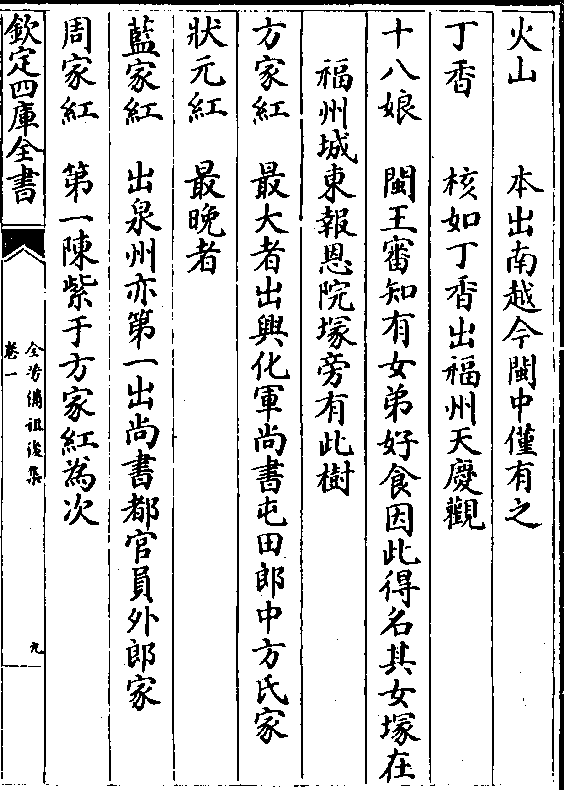 火山　本出南越今閩中僅有之
丁香　核如丁香出福州天慶觀
十八娘　閩王審知有女弟好食因此得名其女塚在
福州城東報恩院塚旁有此樹
方家紅　最大者出興化軍尚書屯田郎中方氏家
狀元紅　最晚者
藍家紅　出泉州亦第一出尚書都官員外郎家
周家紅　第一陳紫于方家紅為次
欽定四庫全書
全芳備祖後集
卷一
九